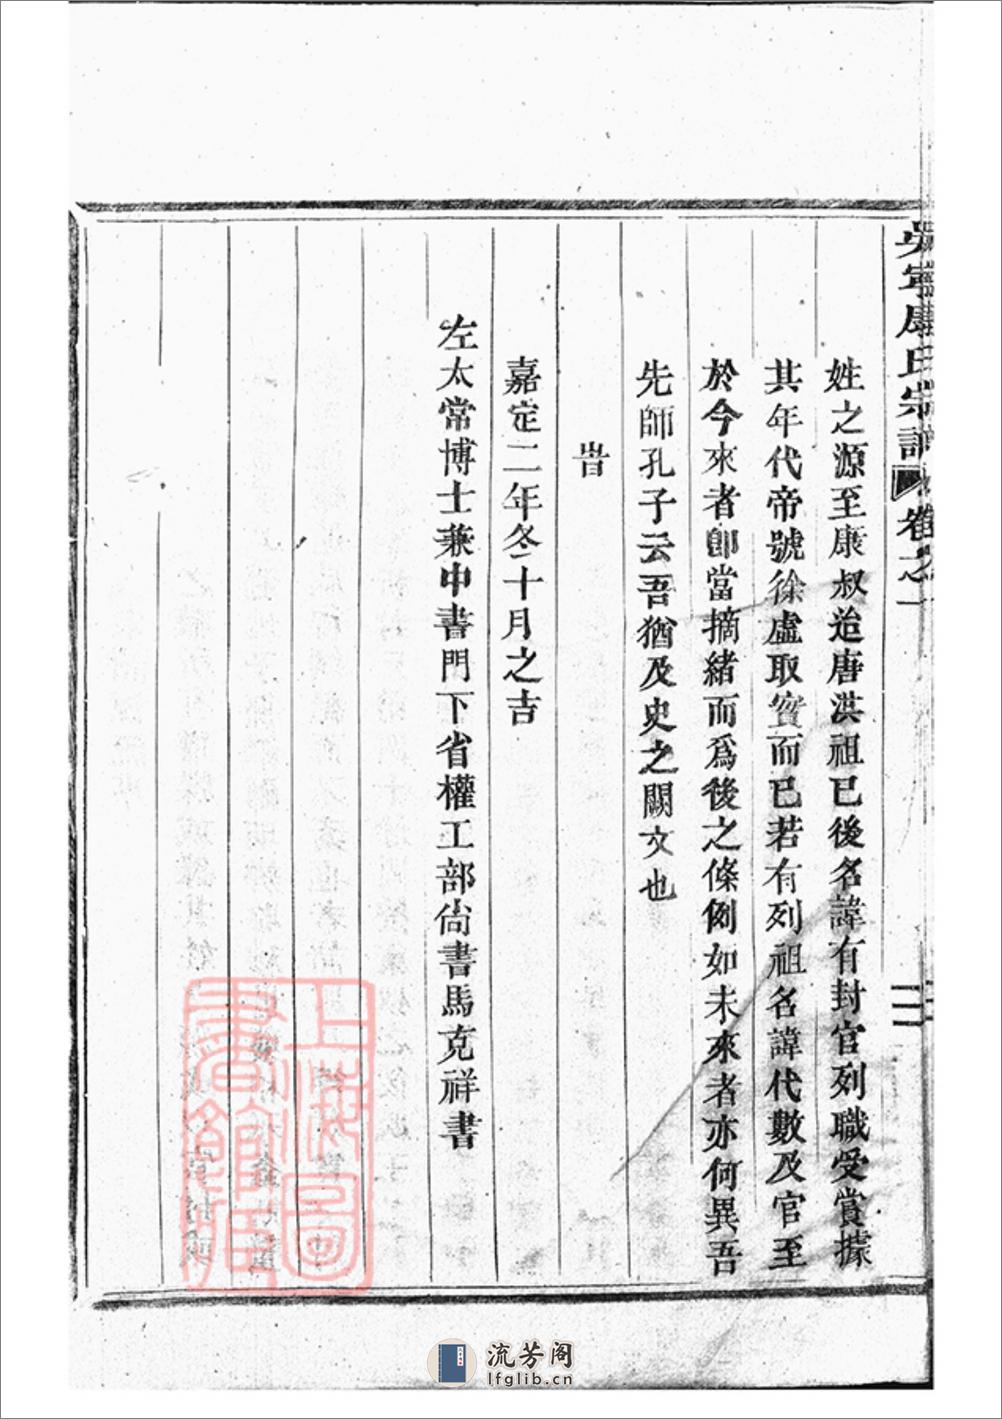 吳寧康氏宗譜 卷之一
姓之源至康叔迨唐洪祖已後名諱有封官列職受賞據
其年代帝號徐虛取實而已若有列祖名諱代數及官至
於今來者卽當摘緒而爲後之條例如未來者亦何異吾
先師孔子云吾猶及史之闕文也
旹
嘉定二年冬十月之吉
左太常博士兼中書門下省權工部尙書馬克祥書
上海圖
書館藏
流芳阁
lfglib.cn